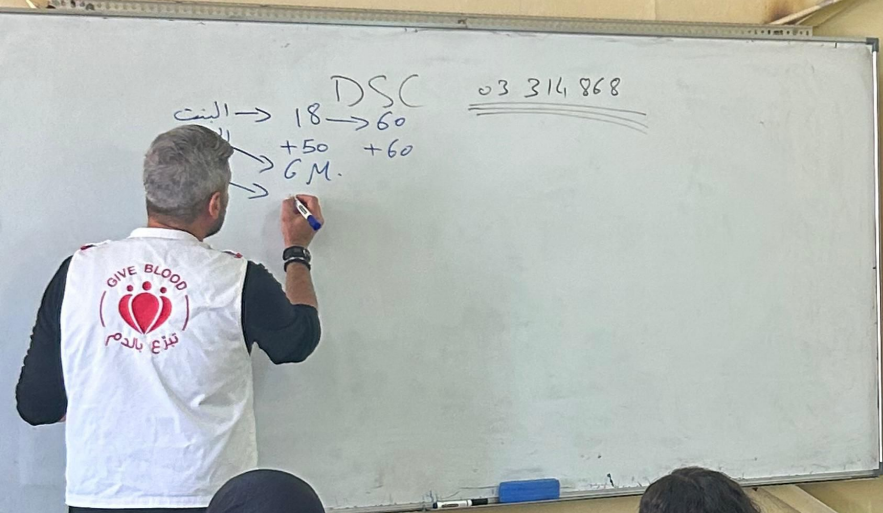 DSC
03 314 868
البنت → 18 → 60
+50 +60
6 M.
GIVE BLOOD
تبرّع بالدم